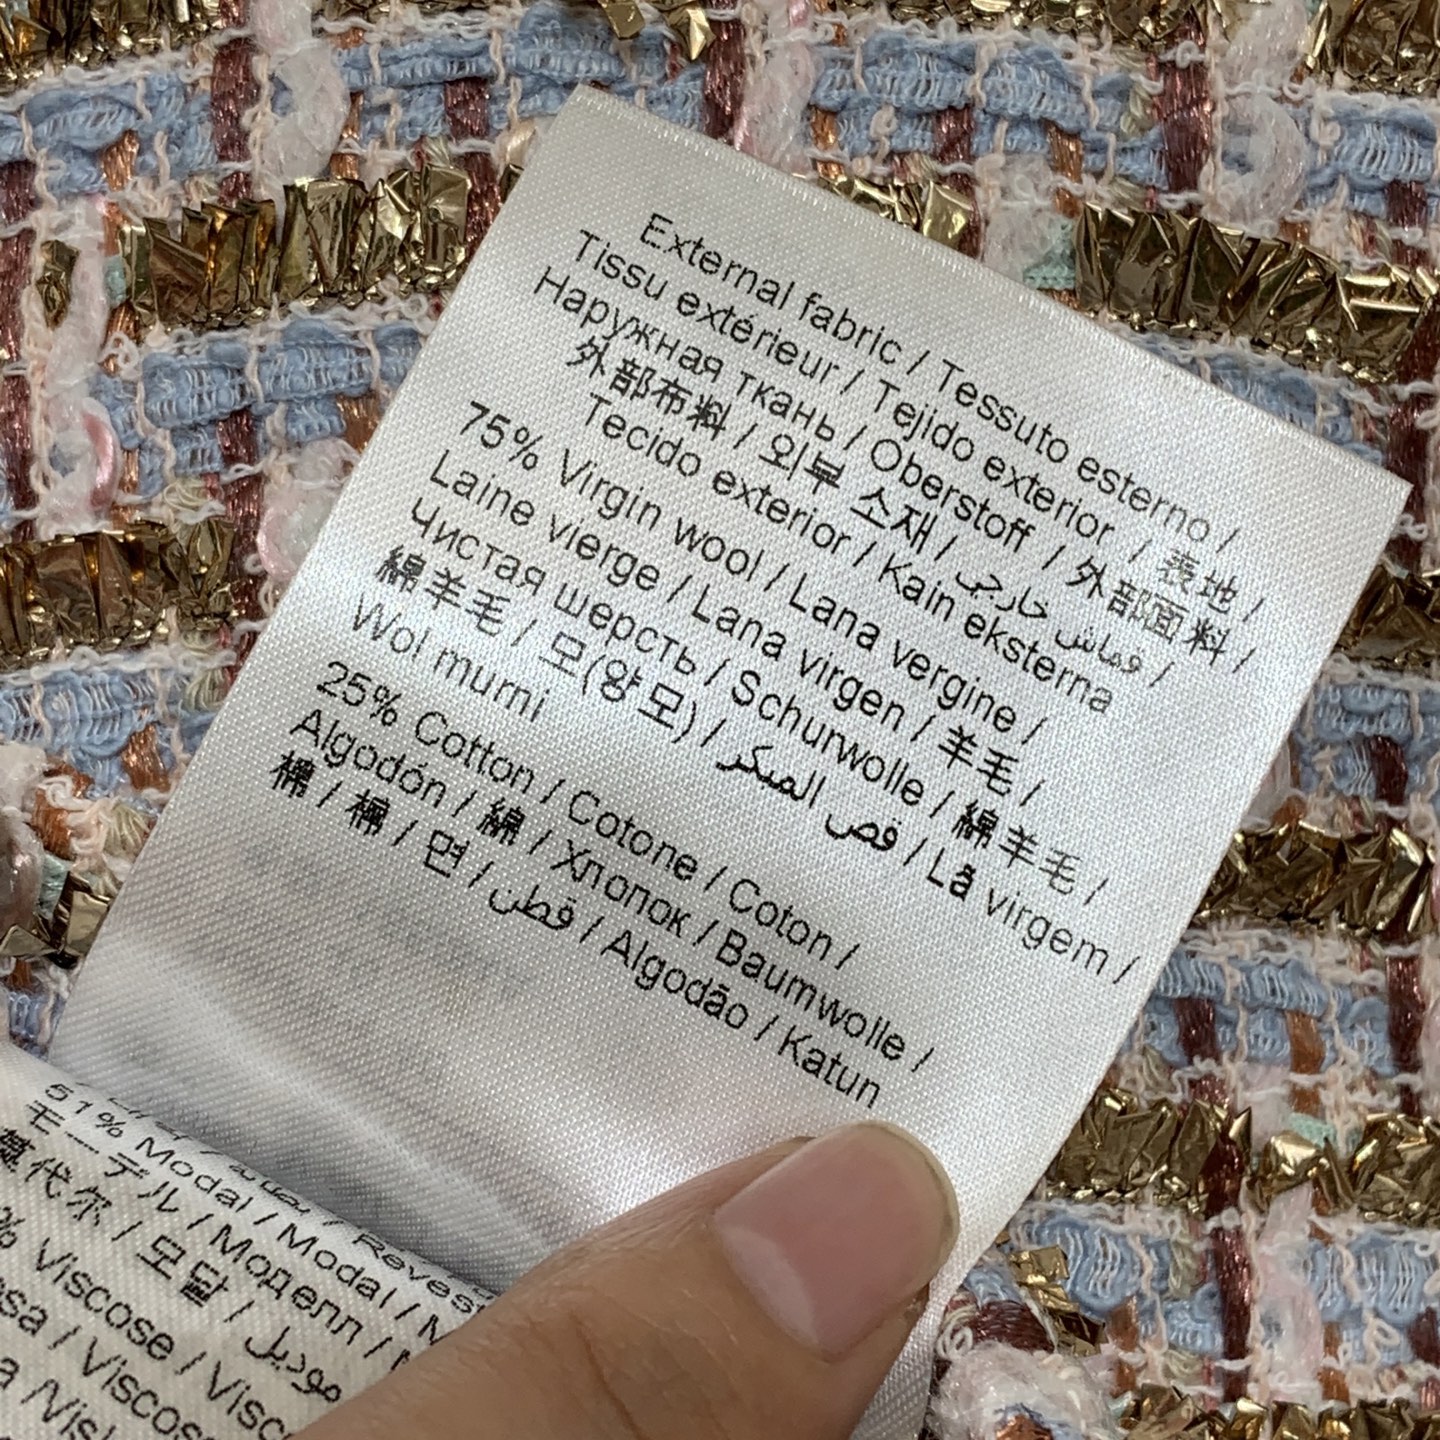 External fabric / Tessuto esterno /
Tissu extérieur / Tejido exterior / 表地 /
Наружная ткань / Oberstoff / 外部面料 /
外部布料 / 외부 소재 / قماش خارجي /
Tecido exterior / Kain eksterna
75% Virgin wool / Lana vergine /
Laine vierge / Lana virgen / 羊毛 /
Чистая шерсть / Schurwolle / 綿羊毛 /
綿羊毛 / 모(양모) / قص المبكر / Lã virgem /
Wol murni
25% Cotton / Cotone / Coton /
Algodón / 綿 / Хлопок / Baumwolle /
棉 / 棉 / 면 / قطن / Algodão / Katun
51% Modal / Modal /
モーデル / Моделл /
代尔 / 모달 / موديل
% Viscose / Viscosa
/ Viscose